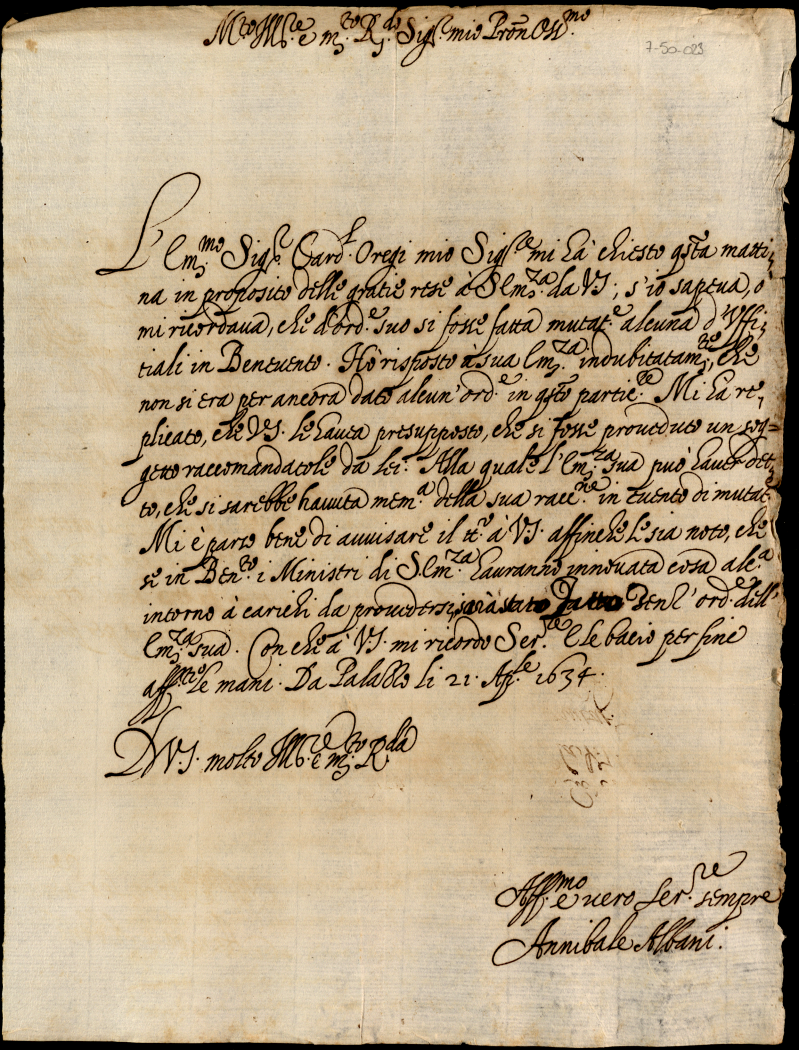 M.to Ill.re e m.to R.do Sig.r mio Pron Oss.mo
7-50-023
L'Em.mo Sig.r Card.l Oregi mio Sig.re mi hà chiesto q.sta matti-
na in proposito delle gratie rese à S. Em.za da VS; s'io sapeva, ò
mi ricordava, che d'ord.e suo si fosse fatta mutat.e alcuna d'Uffi-
tiali in Benevento. Hò risposto à sua Em.za indubitatam.te, che
non si era per ancora dato alcun'ord.e in q.sto partic.re Mi ha re-
plicato, che VS. le havea presupposto, che si fosse proveduto un sog=
getto raccomandatole da lei. Alla quale l'Em.za sua può haver det-
to, che si sarebbe havuta mem.a della sua racc.ne in evento di mutat.e
Mi è parso bene di avvisare il tt.o a VS. affinche le sia noto, che
se in Ben.to i Ministri di S. Em.za hauranno innovata cosa alc.a
intorno à carichi da provedersi, sarà stato fatto senz'ord.e dell'
Em.za sua. Con che a' VS. mi ricordo Ser.re E le bacio per fine
aff.te le mani. Da Palazzo li 21. Ap.le 1634.
D VS. molto Ill.re e m.to R.da
Aff.mo e vero Ser.re sempre
Annibale Albani.